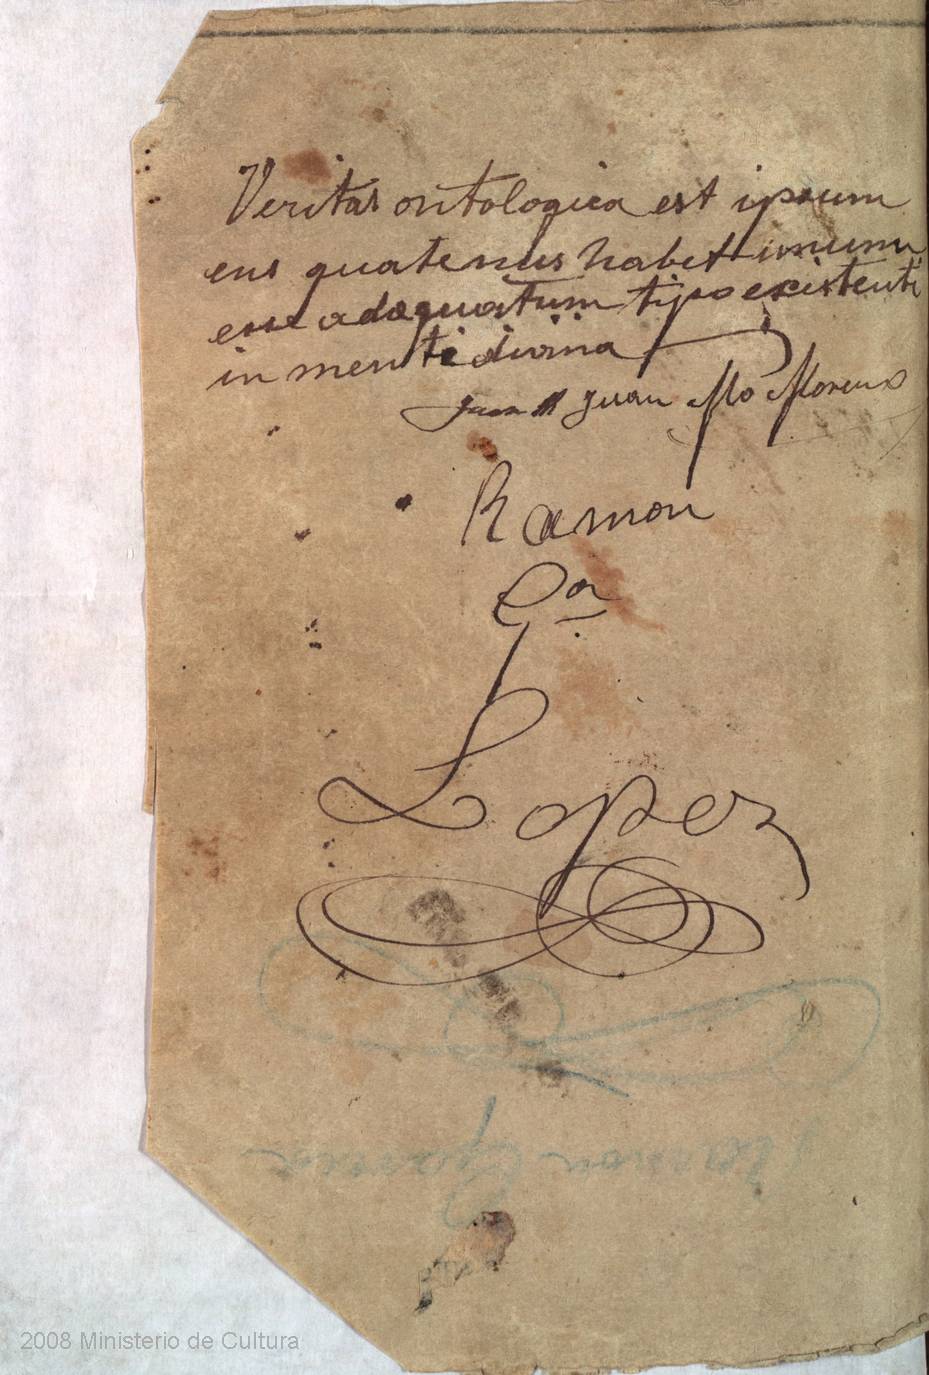 Veritas ontologica est ipsum
ens quatenus habet unum
esse adæquatum tipo existenti
in menti divina
Juan Mo Moreno
Ramon
Lopez
Ramon Garcia
2008 Ministerio de Cultura